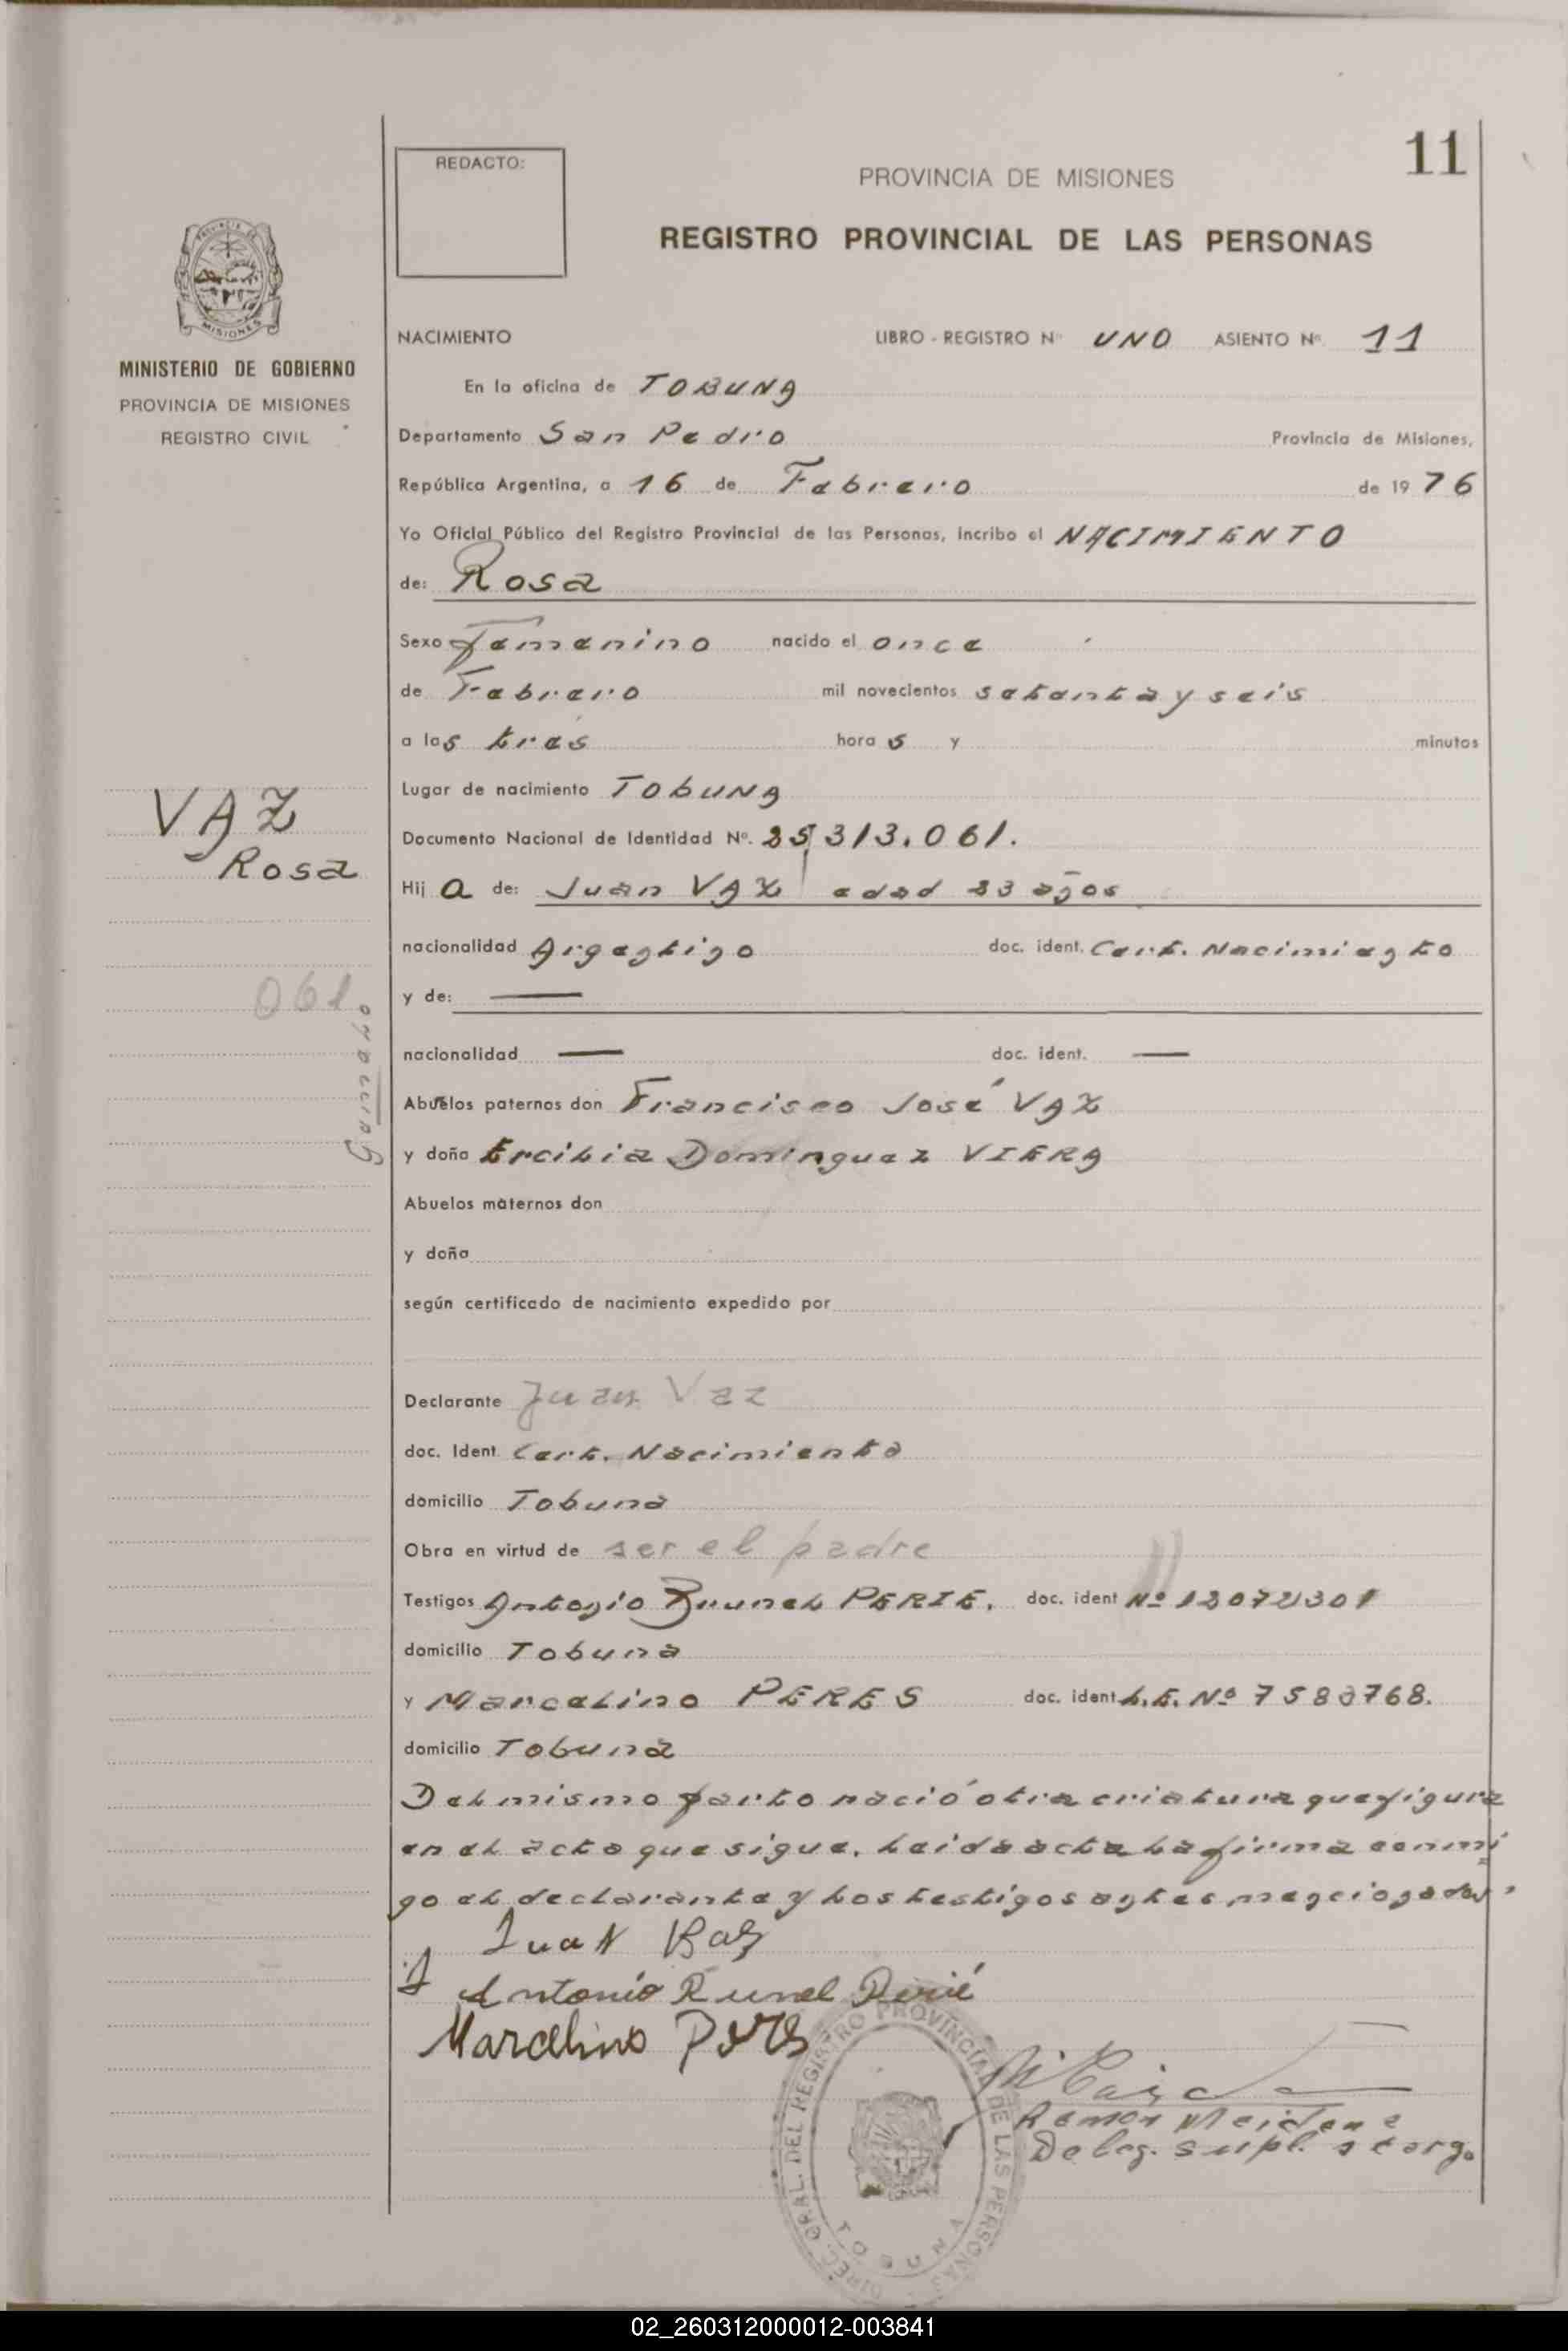 11
REDACTO:
PROVINCIA DE MISIONES
REGISTRO PROVINCIAL DE LAS PERSONAS
MISIONES
MINISTERIO DE GOBIERNO
PROVINCIA DE MISIONES
REGISTRO CIVIL
NACIMIENTO LIBRO - REGISTRO Nº UNO ASIENTO Nº 11
En la oficina de TOBUNA
Departamento San Pedro Provincia de Misiones,
República Argentina, a 16 de Febrero de 1976
Yo Oficial Público del Registro Provincial de las Personas, incribo el NACIMIENTO
de: Rosa
Sexo femenino nacido el once
de Febrero mil novecientos setenta y seis
a las tres horas y minutos
Lugar de nacimiento TOBUNA
VAZ
Rosa
Documento Nacional de Identidad Nº. 25.313.061.
Hija de: Juan VAZ edad 23 años
nacionalidad Argentino doc. ident. Cert. Nacimiento
061
y de: —
nacionalidad — doc. ident. —
Abuelos paternos don Francisco José VAZ
y doña Ercilia Dominguez VIERA
Abuelos maternos don
y doña
según certificado de nacimiento expedido por
Declarante Juan Vaz
doc. Ident. Cert. Nacimiento
domicilio Tobuna
Obra en virtud de ser el padre
Testigos Antonio Ruunel PERIE. doc. ident Nº
domicilio Tobuna
y Marcelino PERES doc. ident L.E. Nº
domicilio Tobuna
Del mismo parto nació otra criatura que figura
en el acto que sigue. Leida acta la firma conmi
go el declarante y los testigos antes mencionados.
Juan Vaz
Antonio Runel Perié
Marcelino
DIREC. GRAL. DEL REGISTRO PROVINCIAL DE LAS PERSONAS
TOBUNA
Ramon
Deleg. supl. a carg.
02_260312000012-003841